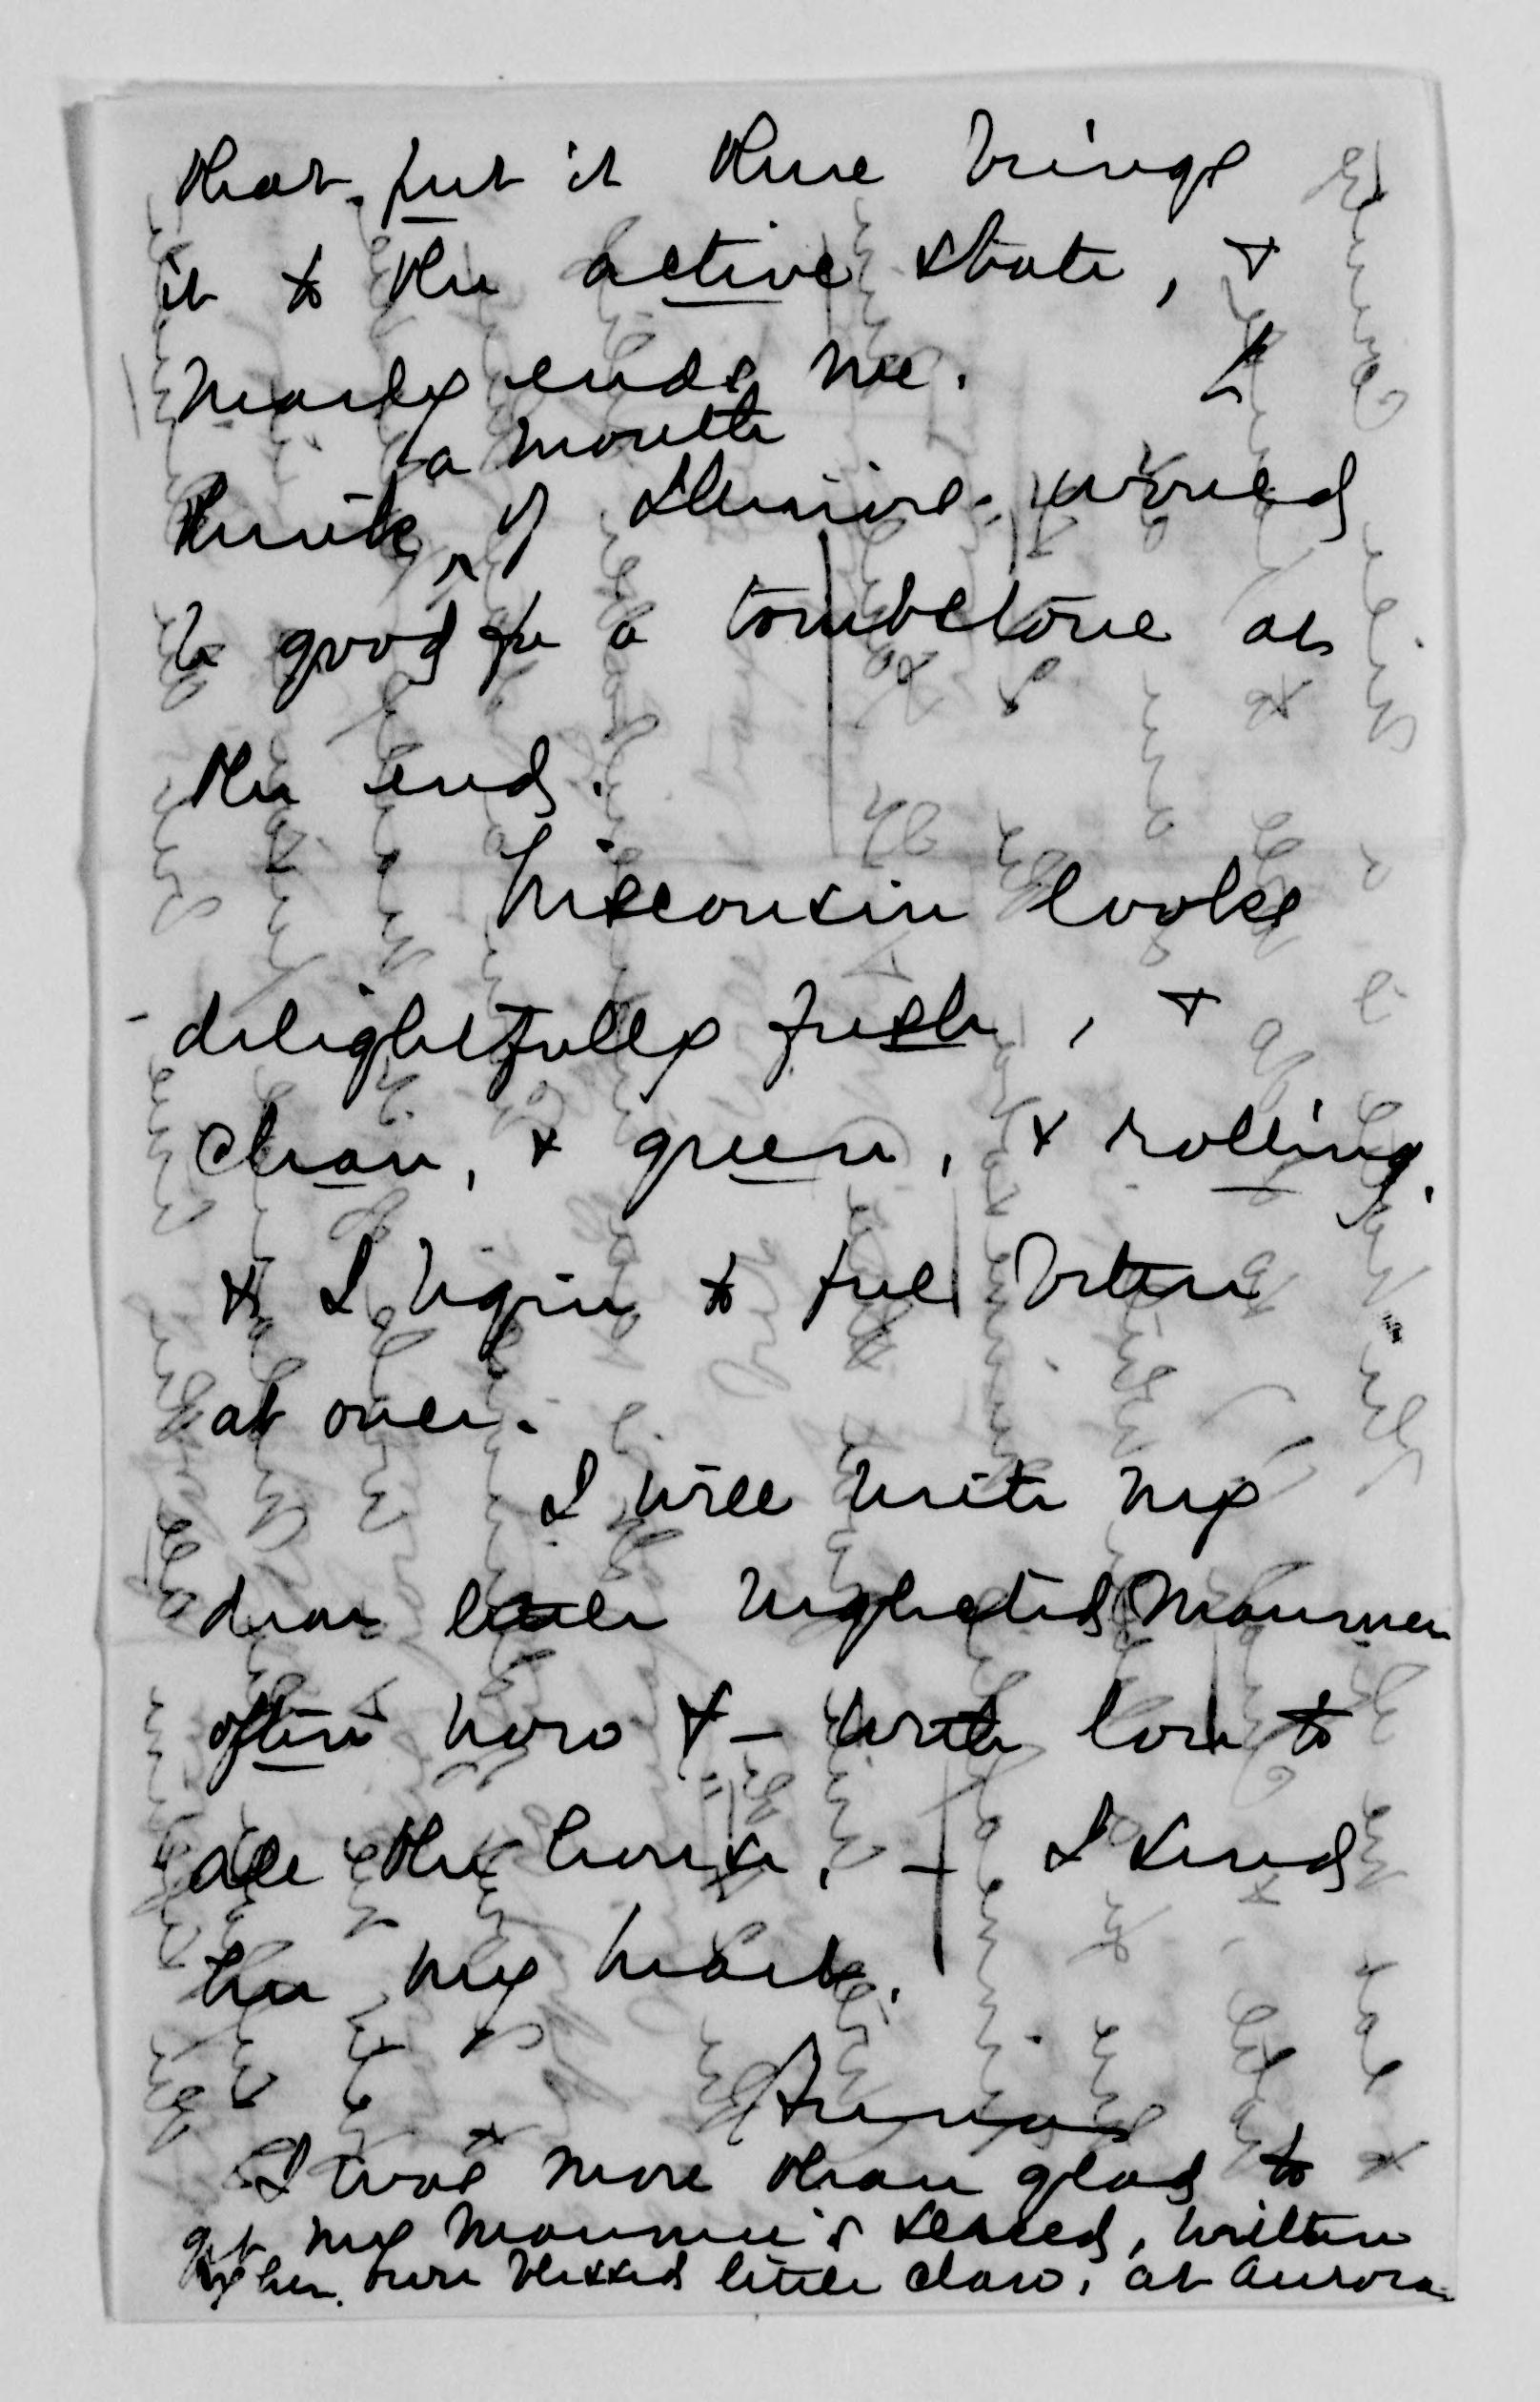 that put it there brings
it to the active state, &
nearly ends me. I
think a month of would
be good for a tombstone at
the end.
Wisconsin looks
delightfully fresh, &
clean, & green, & rolling,
& I begin to feel better
at once.
I will write my
dear little neglected Mammer
often now & – with love to
all the house, – I send
her my heart.
I was more than glad to
get my Mammie's , written
by her own blessed little claw, at Aurora